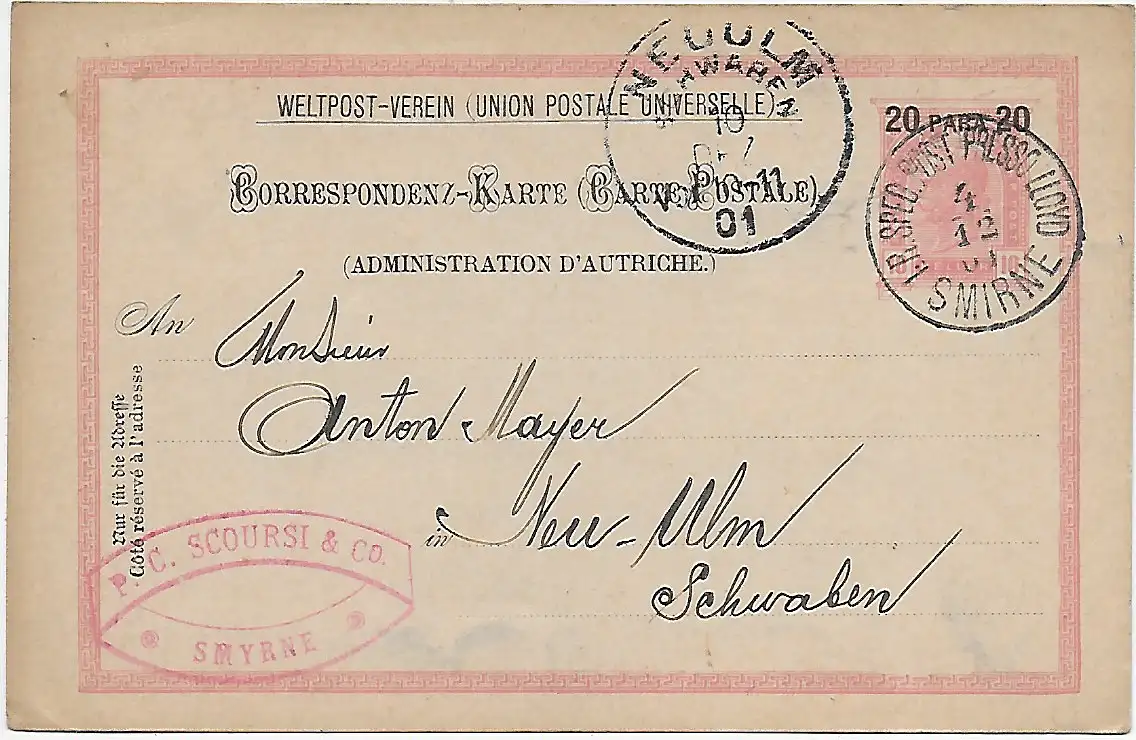 WELTPOST-VEREIN (UNION POSTALE UNIVERSELLE).
CORRESPONDENZ-KARTE (CARTE POSTALE)
(ADMINISTRATION D'AUTRICHE.)
NEUULM
SCHWABEN
10
DEZ
V. 10-11
01
20 PARA 20
I.R. SPED. POST PRESSO LLOYD
4
12
01
SMIRNE
10 10
An
Monsieur
Anton Mayer
in Neu-Ulm
Schwaben
Nur für die Adresse
Côté réservé à l'adresse
P. C. SCOURSI & CO.
SMYRNE